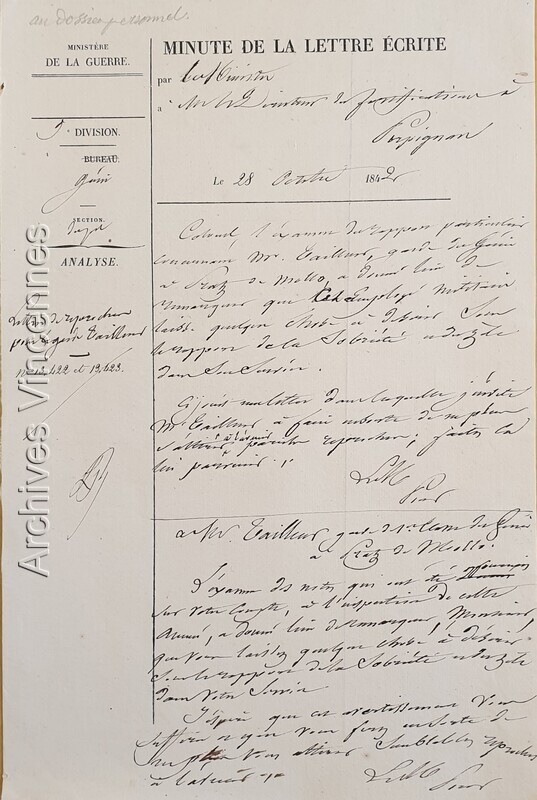 au dossier personnel.
MINISTÈRE
DE LA GUERRE.
DIVISION.
BUREAU.
Génie
SECTION.
ANALYSE.
Lettre de reproches
pour le garde Tailleur
et 19,423.
Archives Vincennes
MINUTE DE LA LETTRE ÉCRITE
par Le Ministre
a Mr le Directeur des fortifications à
Perpignan
Le 28 Octobre 1842
Colonel, l'examen du rapport particulier
concernant Mr. Tailleur, garde du Génie
à Prat de Mollo, a donné lieu de
remarquer que cet employé militaire
laisse quelque chose à désirer sous
le rapport de la sobriété et du zèle
dans son service.
Ci joint une lettre dans laquelle j'invite
Mr Tailleur à faire en sorte de ne plus
s'attirer à l'avenir pareils reproches; faites la
lui parvenir.
à Mr. Tailleur garde de 1re Classe du Génie
à Prat de Mollo.
L'examen des notes qui ont été fournies
sur votre compte, à l'inspection de cette
année, a donné lieu de remarquer, Monsieur,
que vous laissez quelque chose à désirer
sous le rapport de la sobriété et du zèle
dans votre service
J'espère que cet avertissement vous
suffira et que vous ferez en sorte de
ne plus vous attirer semblables reproches
à l'avenir